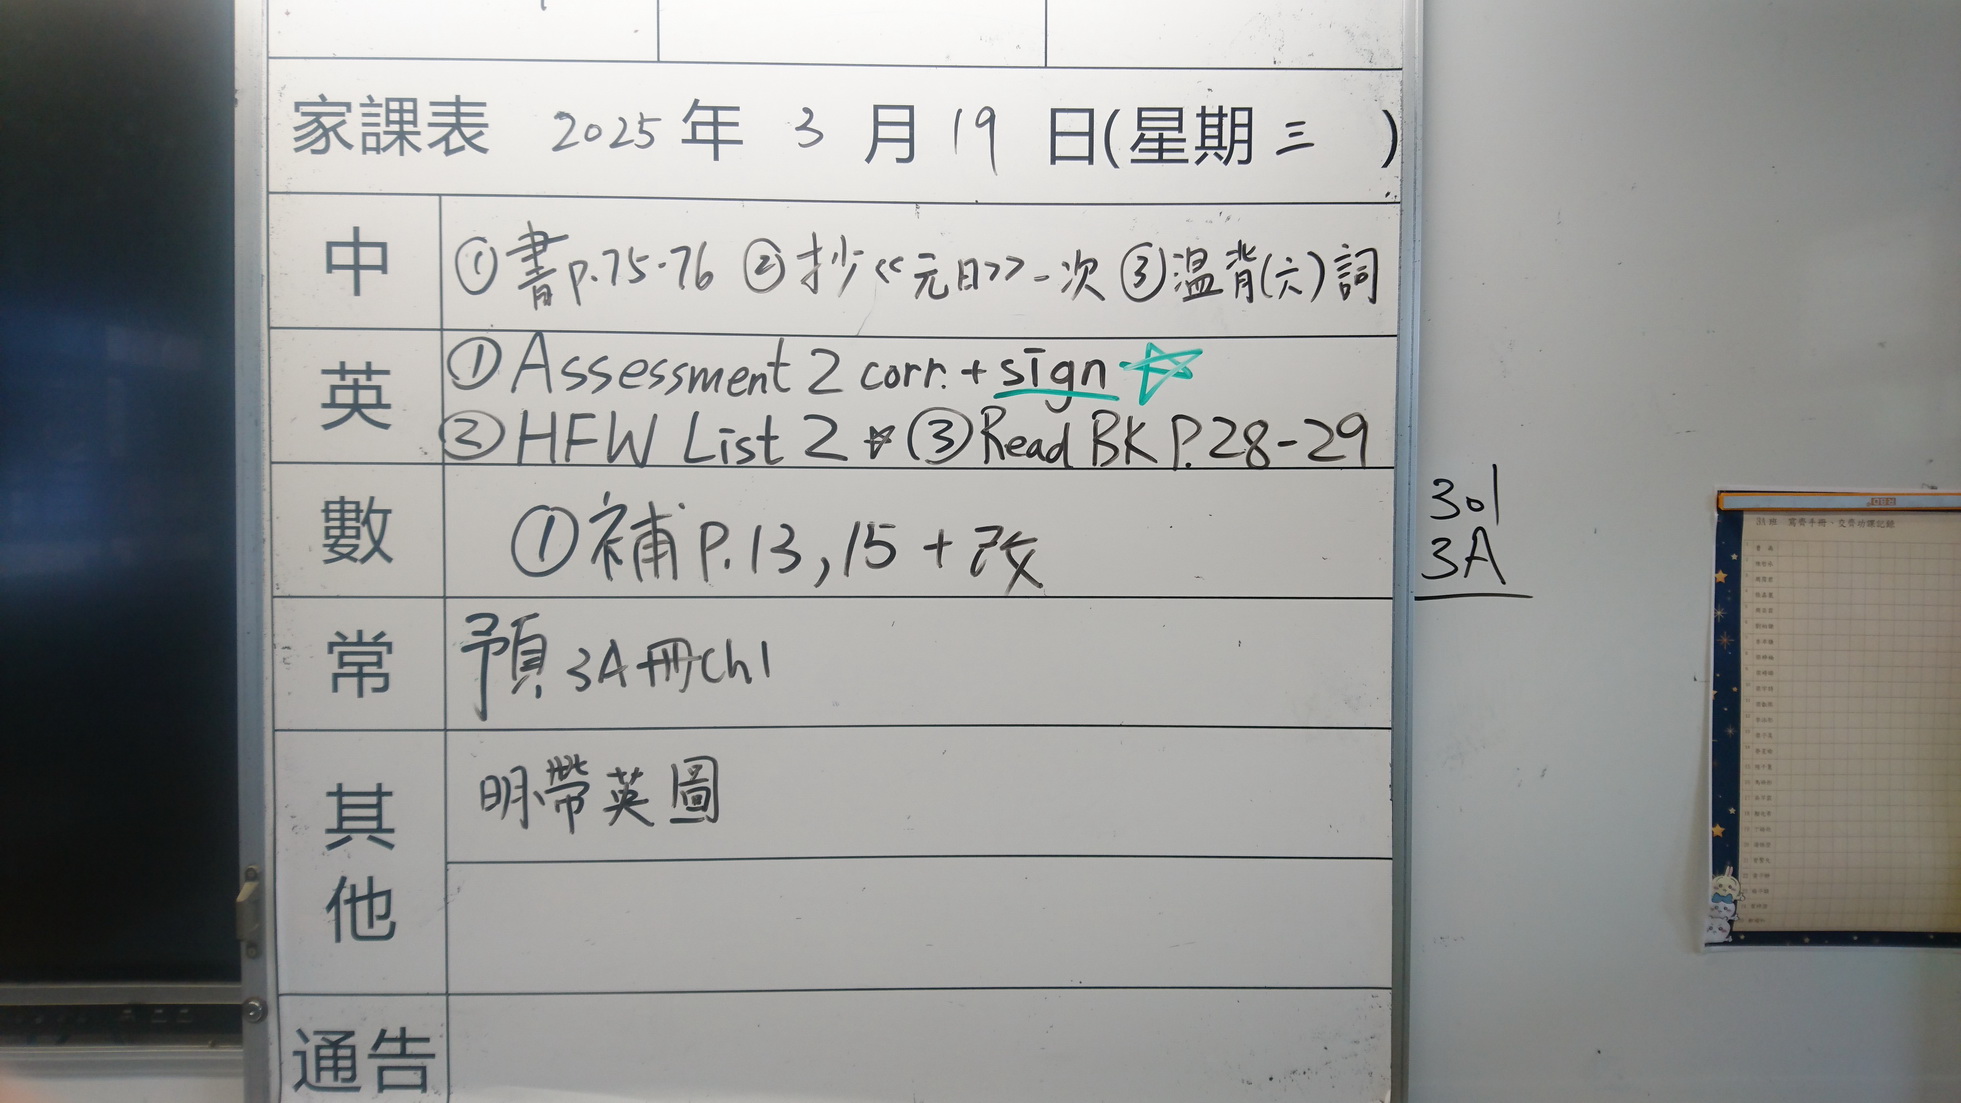 家課表 2025 年 3 月 19 日(星期三 )
中 ①書p.75-76 ②抄<<元日>>一次 ③溫背(六)詞
英 ①Assessment 2 corr. + sign ☆
②HFW List 2 ☆ ③Read BK P.28-29
數 ①補 P.13,15 + 改
常 預 3A冊Ch1
其他 明帶英圖
通告
301
3A